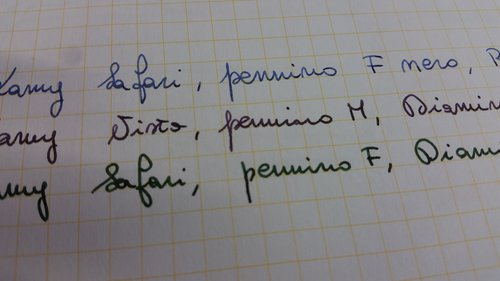 Lamy Safari, pennino F nero,
Lamy Vista, pennino M, Diamin
Lamy Safari, pennino F, Diam